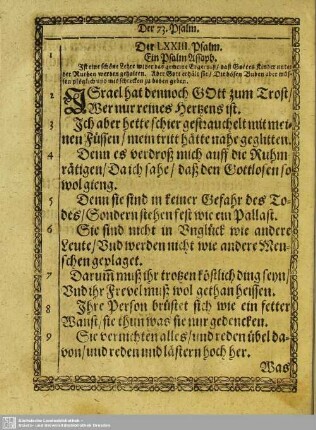 Der 73. Psalm.
Der LXXIII. Psalm.
1 Ein Psalm Assaph.
Ist eine schöne Lehre wider das gemeine Ergernuß/ daß Gottes Kinder unter
der Ruthen werden gehalten. Aber Gott erhält sie/ Die bösen Buben aber müs-
sen plötzlich und mit schrecken zu boden gehen.
2 ISrael hat dennoch GOtt zum Trost/
Wer nur reines Hertzens ist.
3 Ich aber hette schier gestrauchelt mit mei-
nen Füssen/ mein tritt hätte nahe geglitten.
4 Denn es verdroß mich auff die Ruhm-
rätigen/ Da ich sahe/ daß den Gottlosen so
wol gieng.
5 Denn sie sind in keiner Gefahr des To-
des/ Sondern stehen fest wie ein Pallast.
6 Sie sind nicht in Unglück wie andere
Leute/ Vnd werden nicht wie andere Men-
schen geplaget.
7 Darumb muß ihr trotzen köstlich ding seyn/
Vnd ihr Frevel muß wol gethan heissen.
8 Ihre Person brüstet sich wie ein fetter
Wanst/ sie thun was sie nur gedencken.
9 Sie vernichten alles/ und reden übel da-
von/ und reden und lästern hoch her.
Was
Sächsische Landesbibliothek -
Staats- und Universitätsbibliothek Dresden